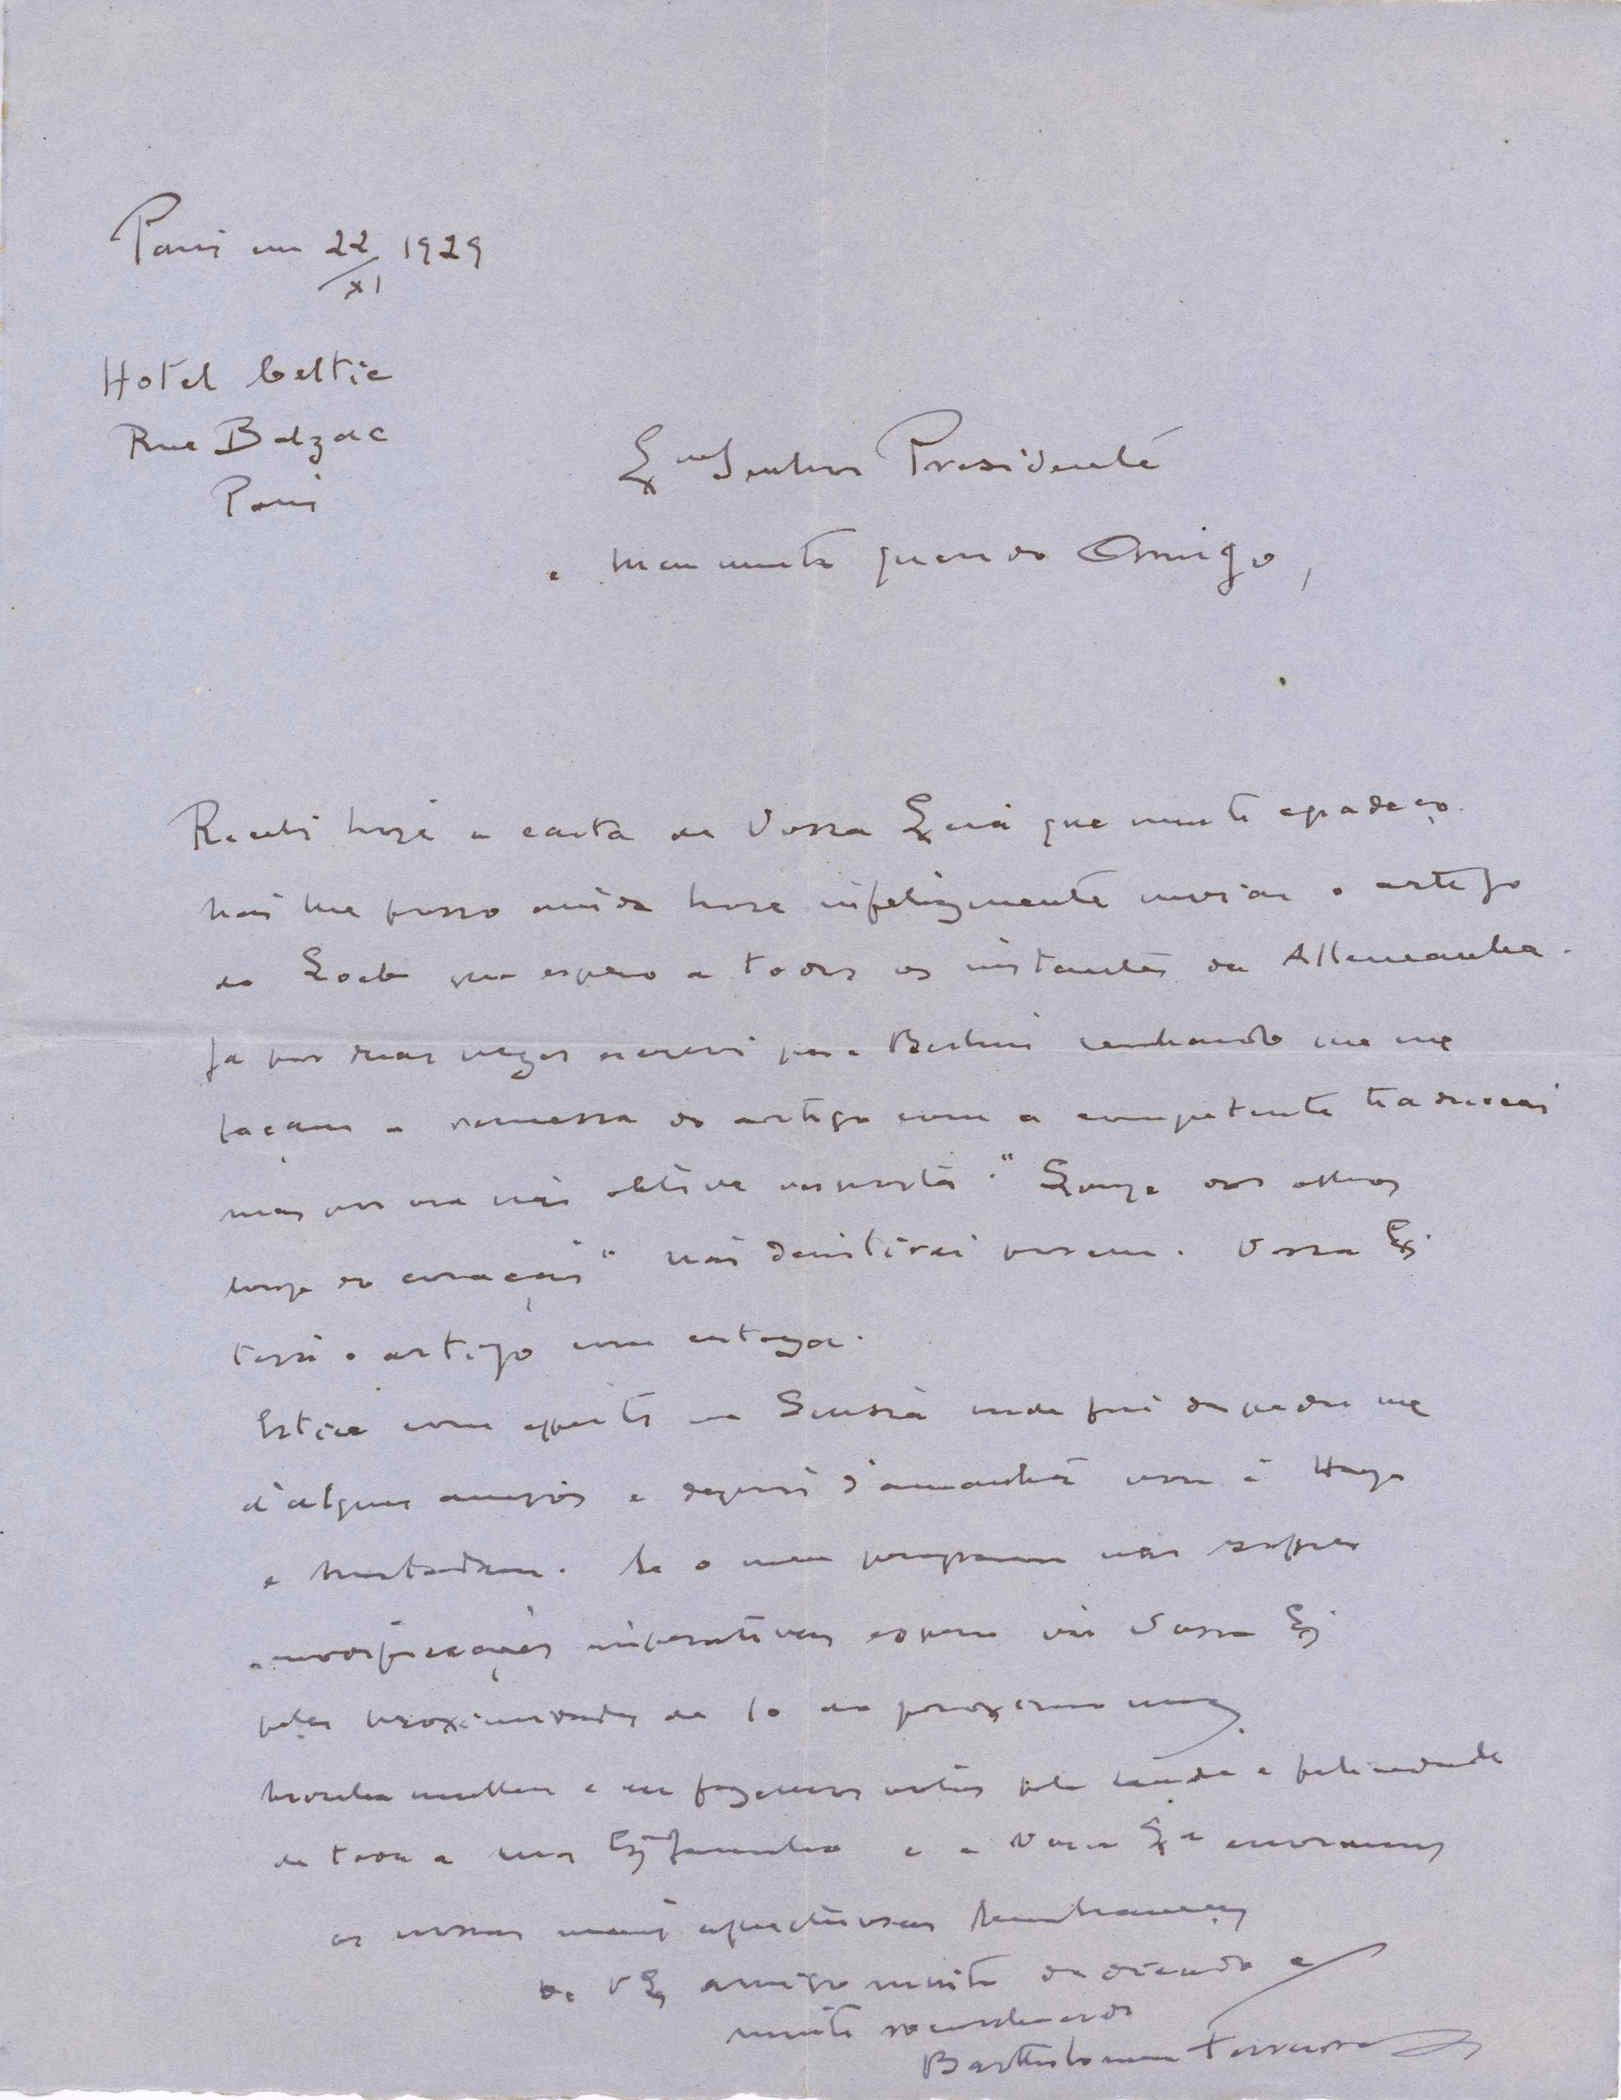 Paris em 22/XI 1929
Hotel Celtic
Rue Balzac
Paris
Ex mo Senhor Presidente
e meu muito querido Amigo,
Recebi hoje a carta de Vossa Excia que muito agradeço.
Não lhe posso ainda hoje infelizmente enviar o artigo
do Loeb que espero a todos os instantes da Allemanha.
Ja por duas vezes escrevi para Berlim lembrando que me
façam a remessa do artigo com a competente traducção
mas por ora não obtive resposta. "Longe dos olhos
longe do coração" não desistirei porem. Vossa Ex.
terá o artigo com certeza.
Estive com effeito na Suissa onde fui despedir me
d'alguns amigos e depois d'amanhã vou á Haya
e Amsterdam. Se o meu programa não soffrer
modificações imperativas espero vêr Vossa Ex
pelas proximidades de 10 do proximo mez.
Minha mulher e eu fazemos votos pela saude e felicidade
de toda a sua Exma familia e a Vossa Exa enviamos
as nossas mais affectuosas lembranças
De V Ex amigo muito dedicado e
muito reconhecido
Bartholomeu Ferreira